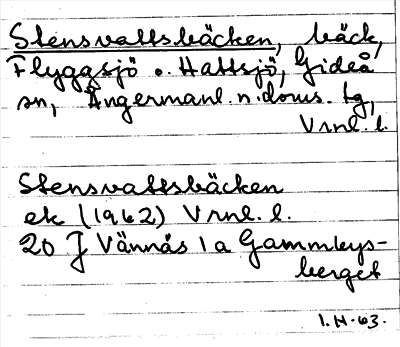 Stensvattsbäcken, bäck,
Flyggsjö o. Hattsjö, Gideå
sn, Ångermanl. n. doms. tg,
Vrnl. l.
Stensvattsbäcken
ek (1962) Vrnl. l.
20 J Vännäs 1 a Gammbys-
berget
1. H. 63.